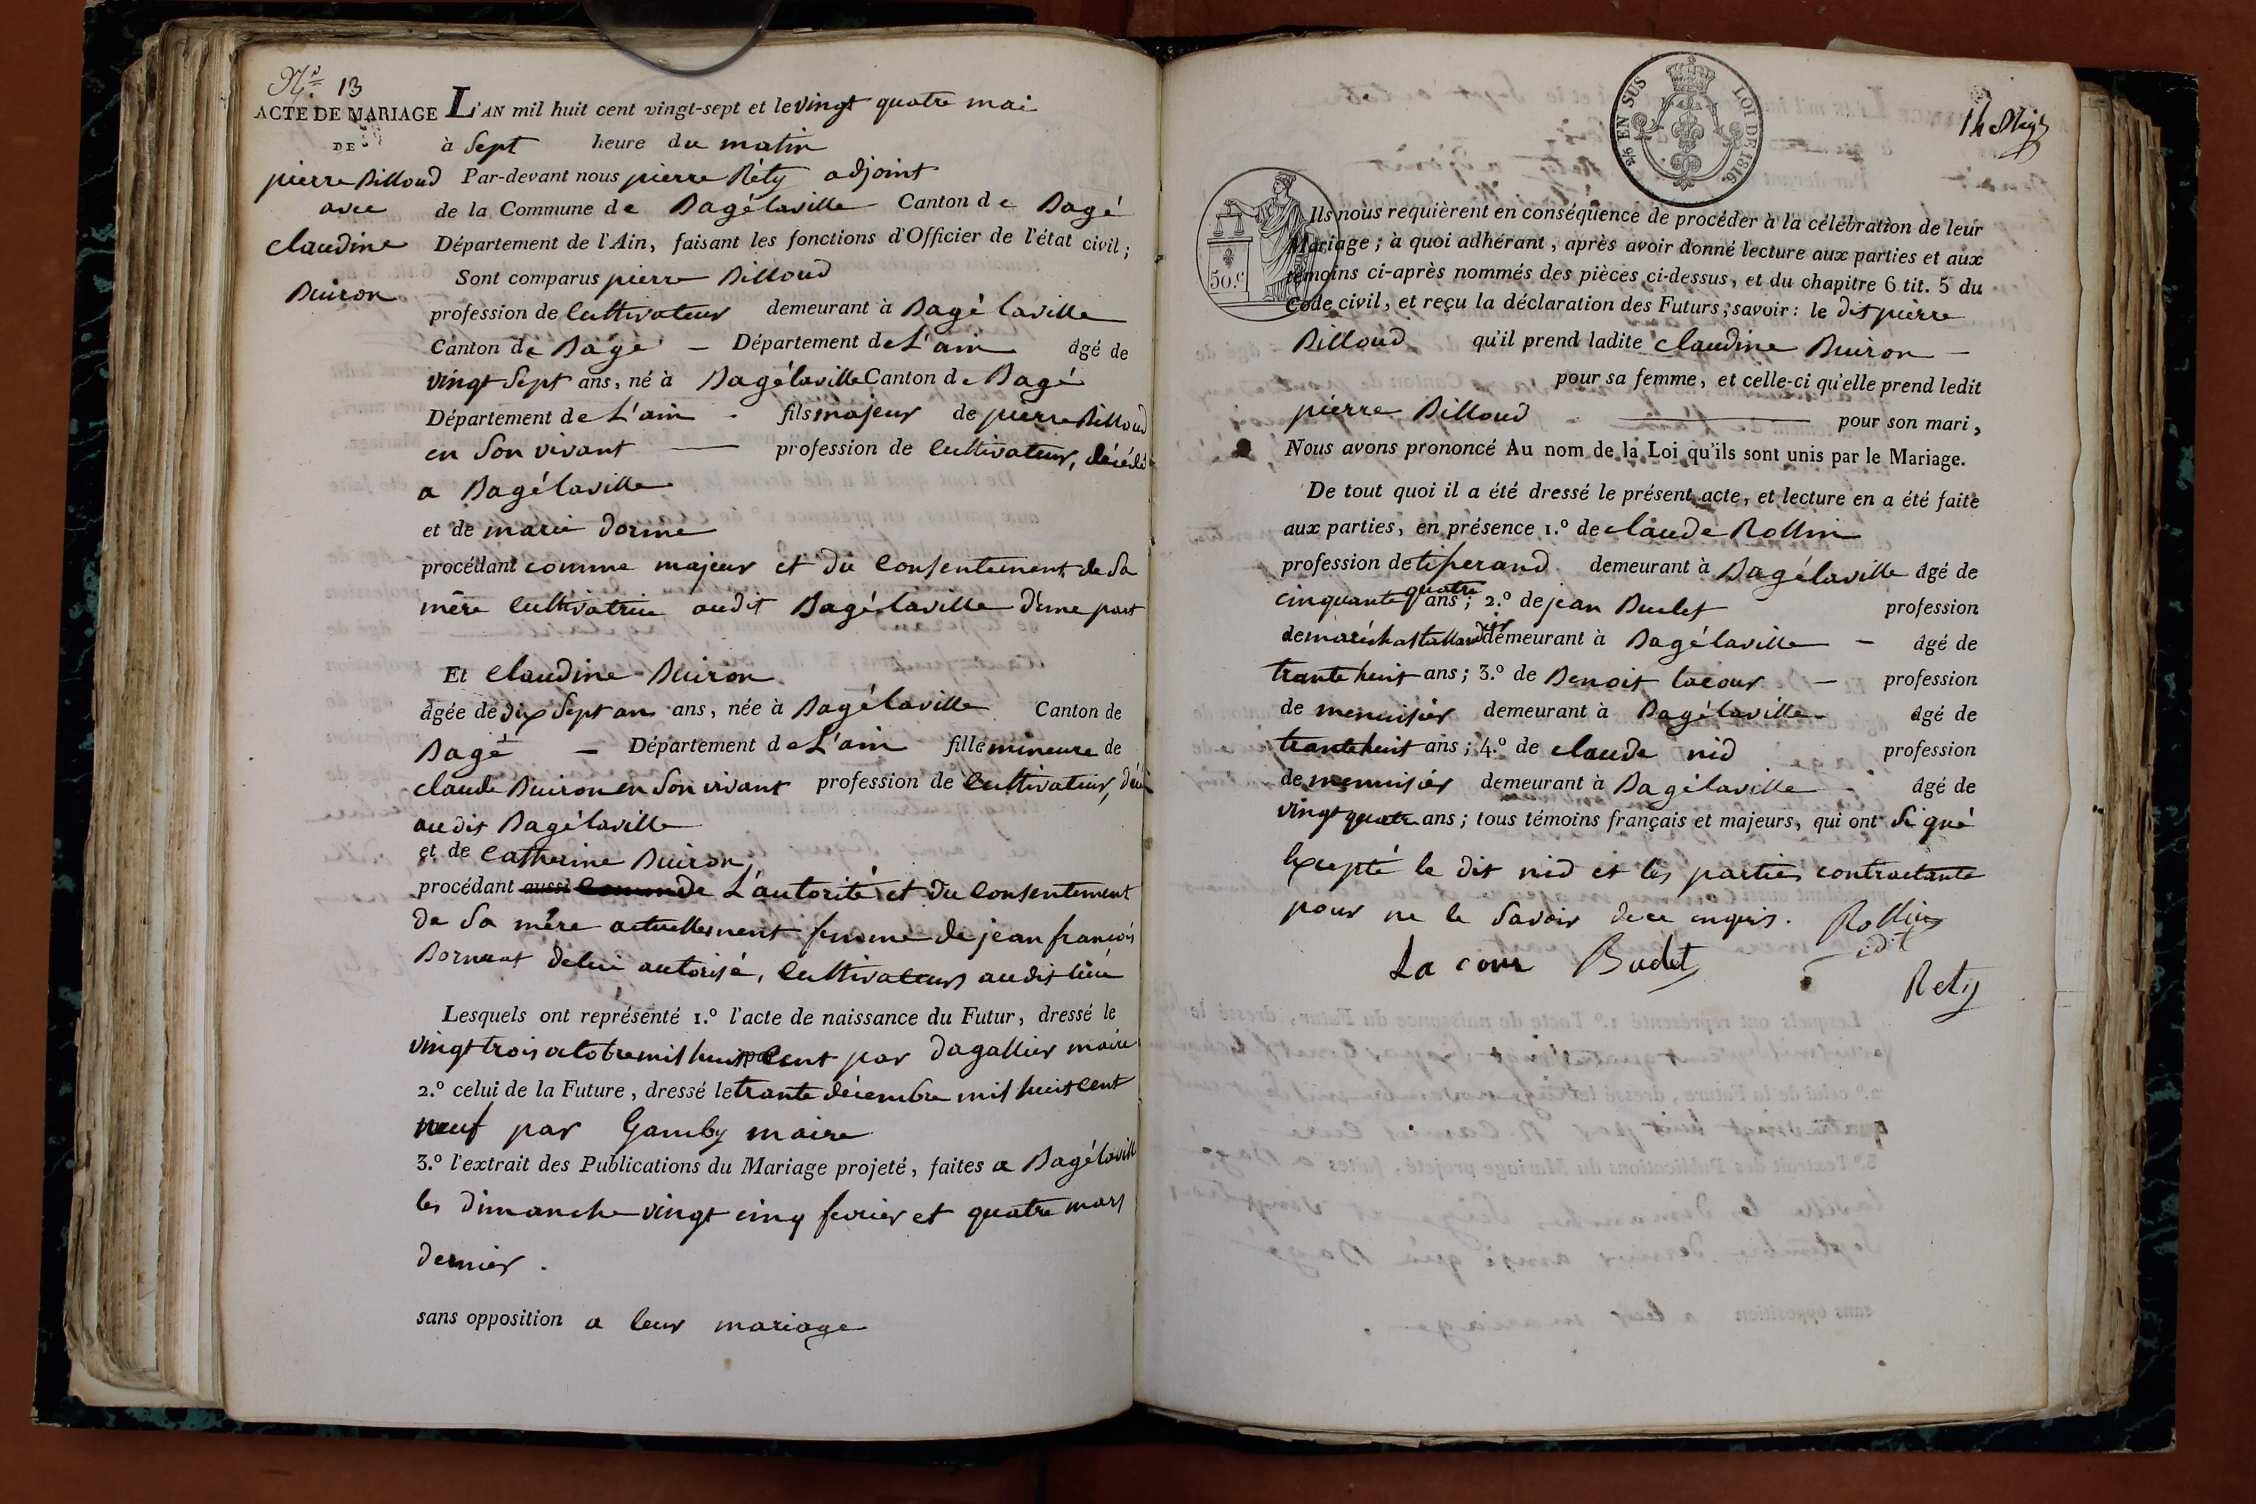 N.° 13
ACTE DE MARIAGE
DE
pierre Billoud
avec
claudine
Buiron
L'AN mil huit cent vingt-sept et le vingt quatre mai
à Sept heure du matin
Par-devant nous pierre Réty adjoint
de la Commune de Bagélaville Canton de Bagé
Département de l'Ain, faisant les fonctions d'Officier de l'état civil;
Sont comparus pierre Billoud
profession de Cultivateur demeurant à Bagé laville
Canton de Bagé — Département de L'ain âgé de
vingt Sept ans, né à Bagélaville Canton de Bagé
Département de L'ain - fils majeur de pierre Billoud
en Son vivant — profession de Cultivateur, décédé
a Bagélaville
et de marie dorme
procédant comme majeur et du Consentement de Sa
mère Cultivatrice audit Bagélaville d'une part
Et Claudine Buiron
âgée de dix Sept an ans, née à Bagélaville Canton de
Bagé — Département de L'ain fille mineure de
claude Buiron en Son vivant profession de Cultivateur,
audit Bagélaville
et de Catherine Buiron,
procédant aussi de L'autorité et du Consentement
de Sa mère actuellement femme de jean francois
delui autorisé, Cultivateurs audit lieu
Lesquels ont représenté 1.° l'acte de naissance du Futur, dressé le
vingt trois octobre mil huit cent par dagallier maire
2.° celui de la Future, dressé le trante décembre mil huit Cent
neuf par Gamby maire
3.° l'extrait des Publications du Mariage projeté, faites a Bagélaville
les dimanche vingt cinq fevrier et quatre mars
dernier.
sans opposition a leur mariage
5/10 EN SUS LOI DE 1816.
50.c
Ils nous requièrent en conséquence de procéder à la célébration de leur
Mariage; à quoi adhérant, après avoir donné lecture aux parties et aux
témoins ci-après nommés des pièces ci-dessus, et du chapitre 6 tit. 5 du
Code civil, et reçu la déclaration des Futurs, savoir: le dit pierre
Billoud qu'il prend ladite claudine Buiron —
pour sa femme, et celle-ci qu'elle prend ledit
pierre Billoud — pour son mari,
Nous avons prononcé Au nom de la Loi qu'ils sont unis par le Mariage.
De tout quoi il a été dressé le présent acte, et lecture en a été faite
aux parties, en présence 1.° de claude Rollin
profession de tisserand demeurant à Bagélaville âgé de
cinquante quatre ans; 2.° de jean Budet profession
de maréchal taillandier demeurant à Bagélaville — âgé de
trante huit ans; 3.° de Benoit lacour — profession
de menuisier demeurant à Bagélaville - âgé de
trante huit ans; 4.° de claude nid profession
de menuisier demeurant à Bagélaville - âgé de
vingt quatre ans; tous témoins français et majeurs, qui ont Signé
Excepté le dit nid et les parties contractante
pour ne le Savoir de ce enquis. Rollin
La cour Budet
Rety